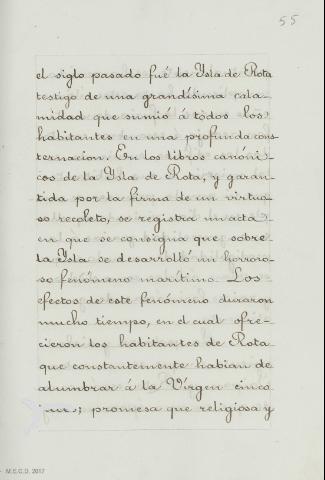 55
el siglo pasado fué la Ysla de Rota
testigo de una grandísima cala-
midad que sumió á todos los
habitantes en una profunda cons-
ternacion. En los libros canóni-
cos de la Ysla de Rota, y garan-
tida por la firma de un virtuo-
so recoleto, se registra un acta
en que se consigna que sobre
la Ysla se desarrolló un horroro-
so fenómeno marítimo. Los
efectos de este fenómeno duraron
mucho tiempo, en el cual ofre-
cieron los habitantes de Rota
que constantemente habian de
alumbrar á la Vírgen cinco
; promesa que religiosa y
M.E.C.D. 2017